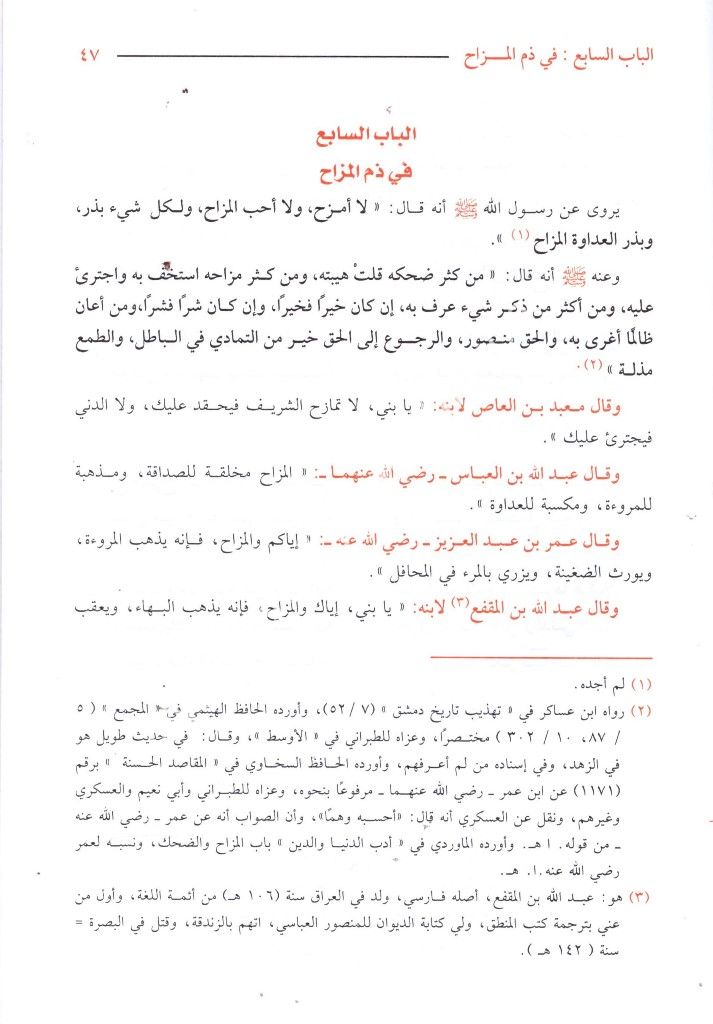 الباب السابع : في ذم المـــزاح ٤٧
الباب السابع
في ذم المزاح
يروى عن رسول الله ﷺ أنه قال: « لا أمزح، ولا أحب المزاح، ولكل شيء بذر،
وبذر العداوة المزاح (١) ».
وعنه ﷺ أنه قال: « من كثر ضحكه قلتْ هيبته، ومن كثر مزاحه استخف به واجترئ
عليه، ومن أكثر من ذكر شيء عرف به، إن كان خيرًا فخيرًا، وإن كان شرًا فشرًا،ومن أعان
ظالمًا أغرى به، والحق منصور، والرجوع إلى الحق خير من التمادي في الباطل، والطمع
مذلة » (٢).
وقال معبد بن العاص لابنه: « يا بني، لا تمازح الشريف فيحقد عليك، ولا الدني
فيجترئ عليك ».
وقال عبد الله بن العباس ـ رضي الله عنهما ـ: « المزاح مخلقة للصداقة، ومذهبة
للمروءة، ومكسبة للعداوة ».
وقال عمر بن عبد العزيز ـ رضي الله عنه ـ: « إياكم والمزاح، فإنه يذهب المروءة،
ويورث الضغينة، ويزري بالمرء في المحافل ».
وقال عبد الله بن المقفع (٣) لابنه: « يا بني، إياك والمزاح، فإنه يذهب البهاء، ويعقب
(١) لم أجده.
(٢) رواه ابن عساكر في « تهذيب تاريخ دمشق » (٧ / ٥٢)، وأورده الحافظ الهيثمي في « المجمع » ( ٥
/ ٨٧، ١٠ / ٣٠٢ ) مختصرًا، وعزاه للطبراني في « الأوسط »، وقال: في حديث طويل هو
في الزهد، وفي إسناده من لم أعرفهم، وأورده الحافظ السخاوي في « المقاصد الحسنة » برقم
(١١٧١) عن ابن عمر ـ رضي الله عنهما ـ مرفوعًا بنحوه، وعزاه للطبراني وأبي نعيم والعسكري
وغيرهم، ونقل عن العسكري أنه قال: «أحسبه وهمًا»، وأن الصواب أنه عن عمر ـ رضي الله عنه
ـ من قوله. ا هـ. وأورده الماوردي في « أدب الدنيا والدين » باب المزاح والضحك، ونسبه لعمر
رضي الله عنه.ا. هـ.
(٣) هو: عبد الله بن المقفع، أصله فارسي، ولد في العراق سنة (١٠٦ هـ) من أئمة اللغة، وأول من
عني بترجمة كتب المنطق، ولي كتابة الديوان للمنصور العباسي، اتهم بالزندقة، وقتل في البصرة =
سنة ( ١٤٢ هـ ).